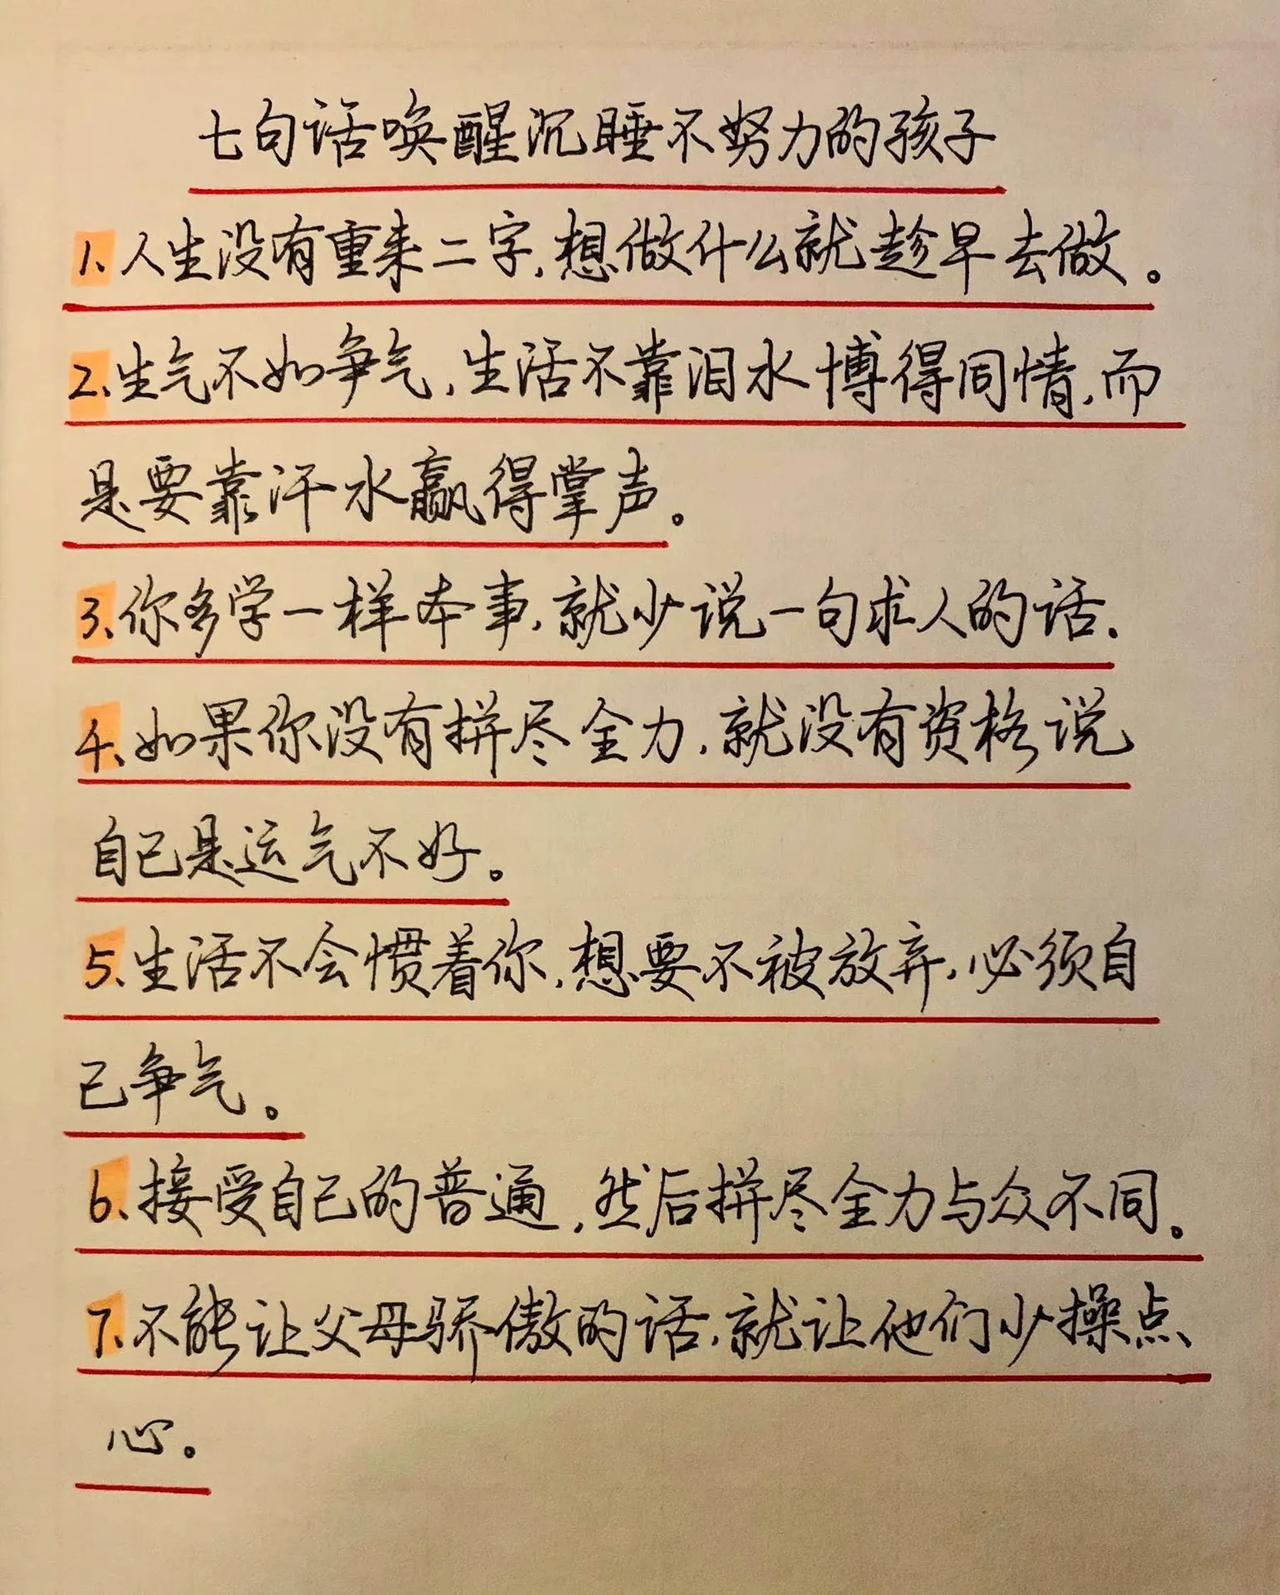 七句话唤醒沉睡不努力的孩子
1、人生没有重来二字,想做什么就趁早去做。
2、生气不如争气,生活不靠泪水博得同情,而
是要靠汗水赢得掌声。
3、你多学一样本事,就少说一句求人的话.
4、如果你没有拼尽全力,就没有资格说
自己是运气不好。
5、生活不会惯着你,想要不被放弃,必须自
己争气。
6、接受自己的普通,然后拼尽全力与众不同。
7、不能让父母骄傲的话,就让他们少操点
心。